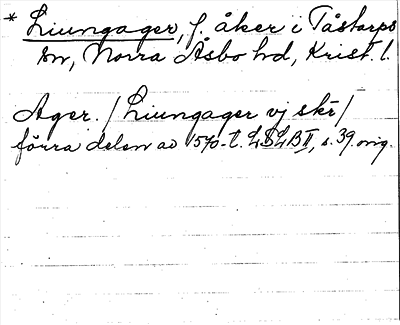 * Liungager, f. åker i Tåstarps
sn, Norra Åsbo hd, Krist. l.
Ager. / Liungager vj skr /
förra delen av 1570-t. LSLB II, s. 39 orig.